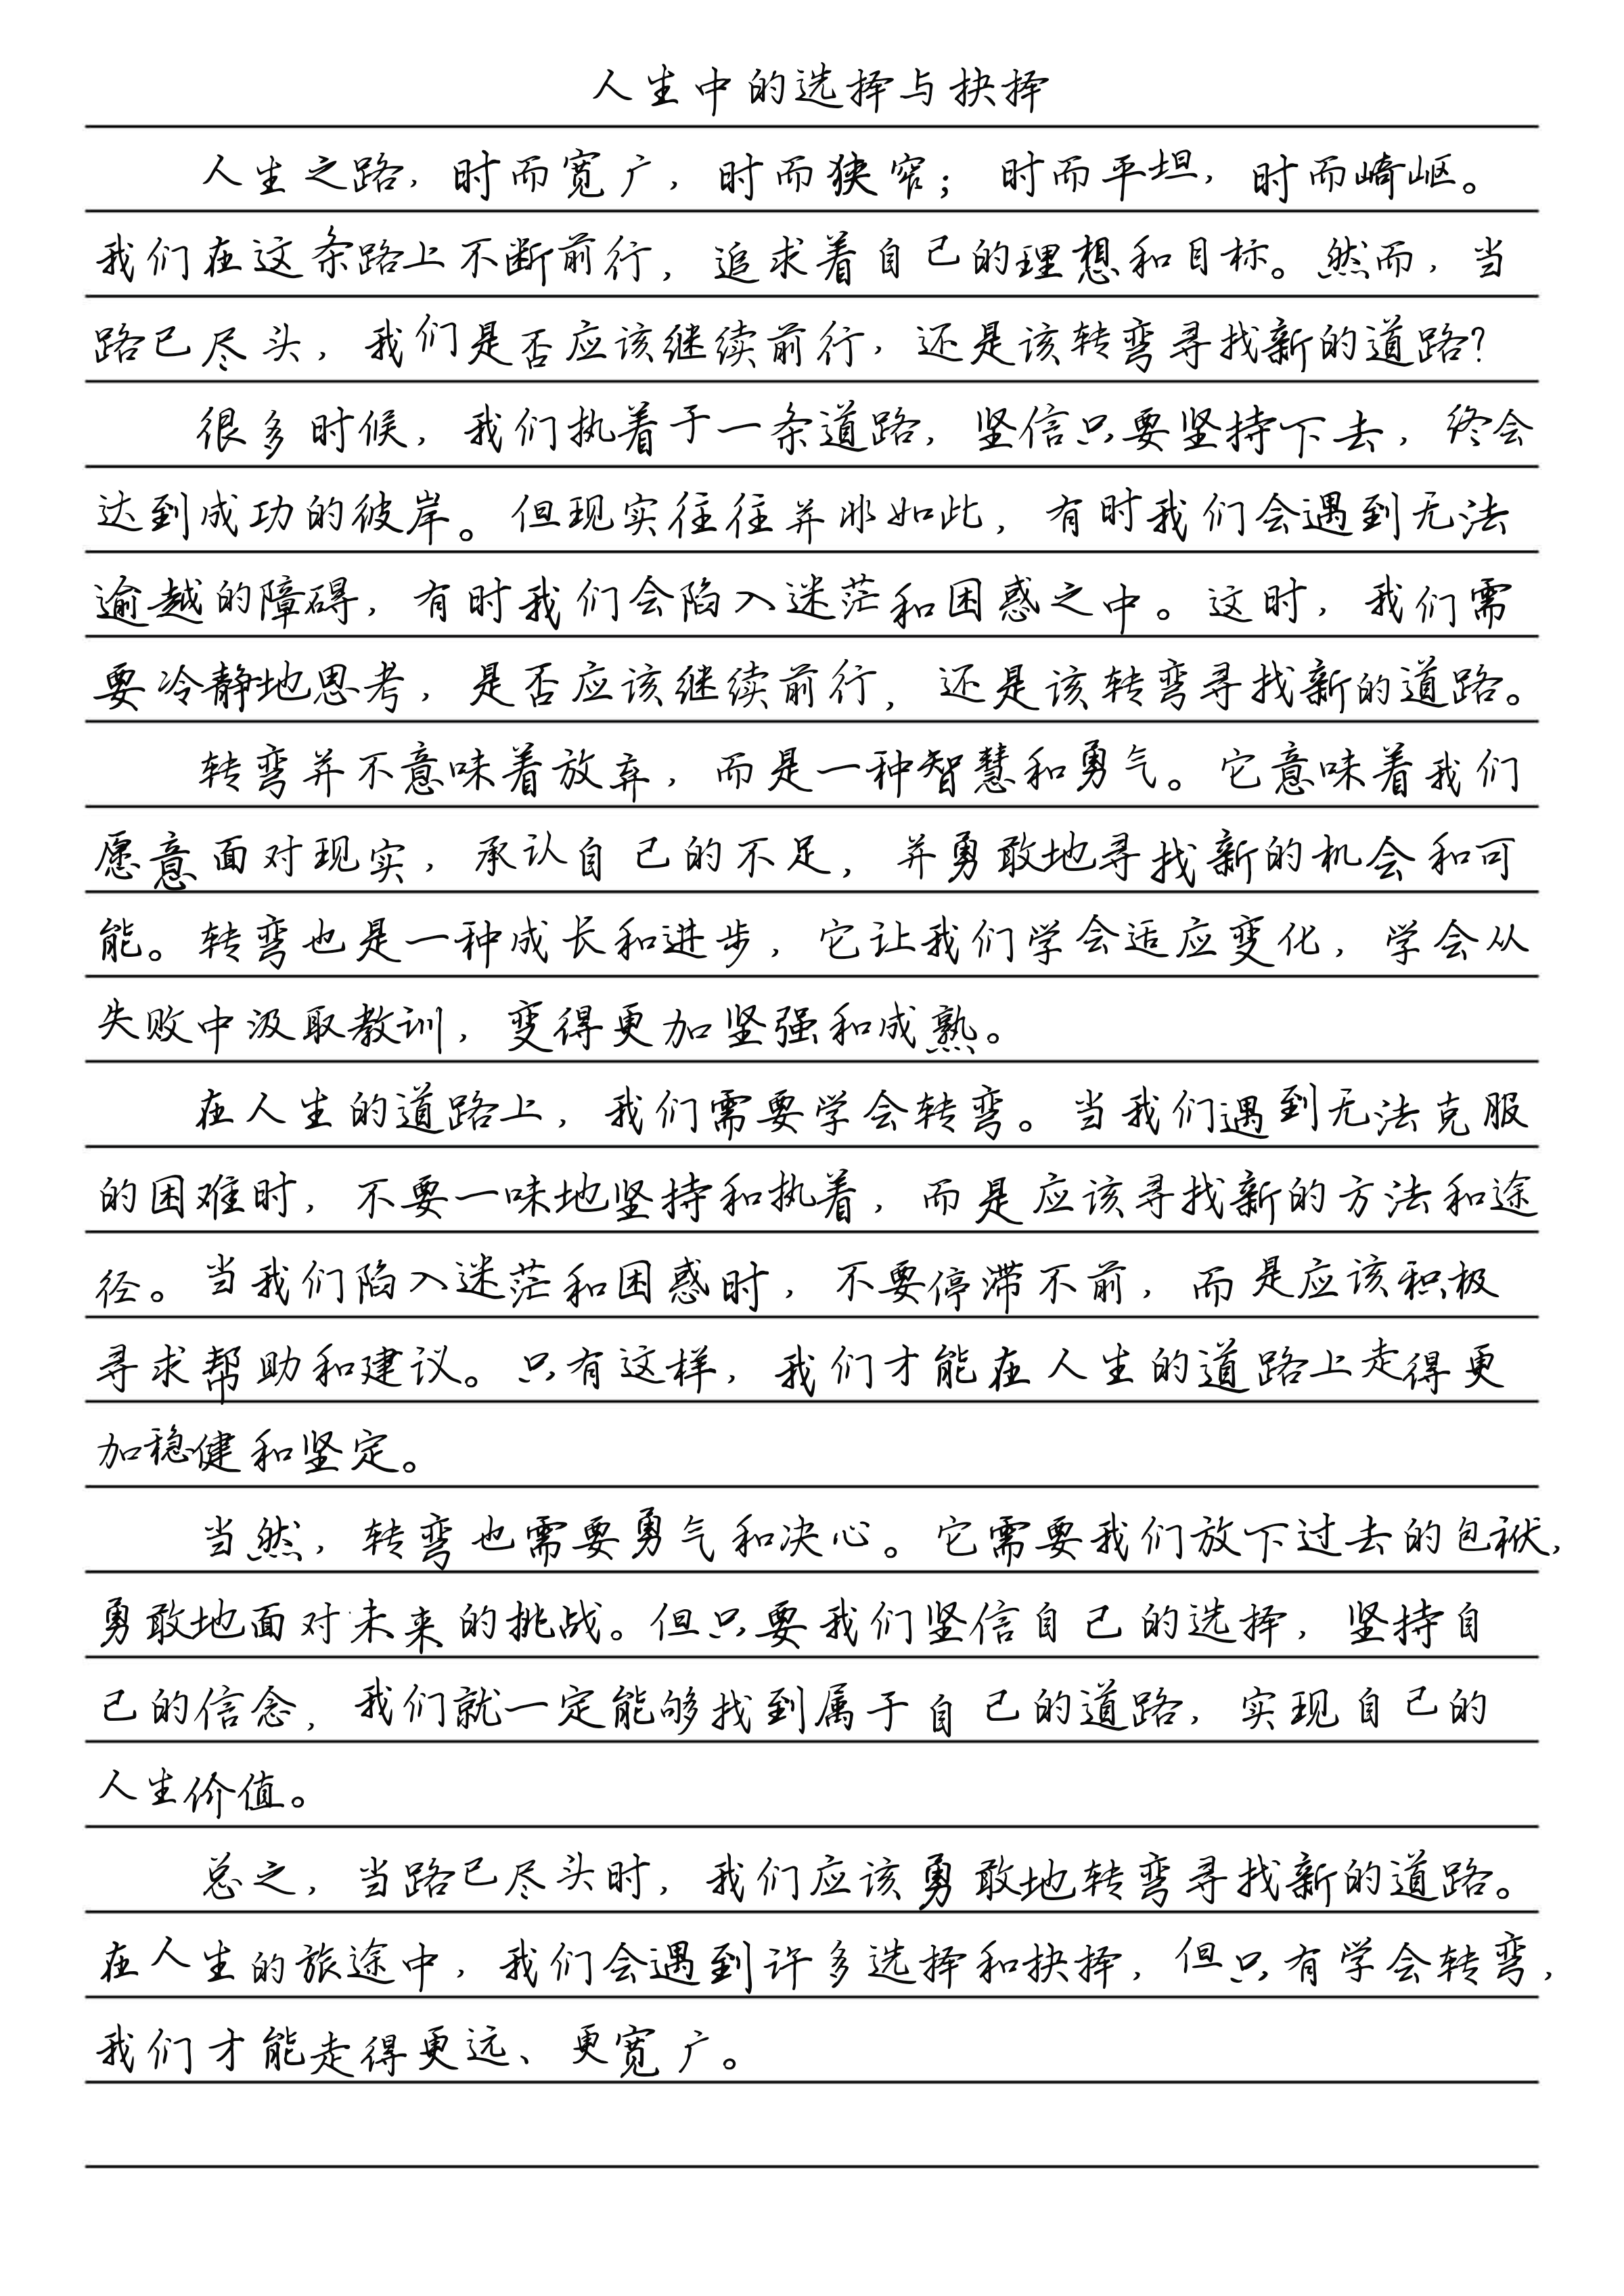 人生中的选择与抉择
人生之路，时而宽广，时而狭窄；时而平坦，时而崎岖。
我们在这条路上不断前行，追求着自己的理想和目标。然而，当
路已尽头，我们是否应该继续前行，还是该转弯寻找新的道路？
很多时候，我们执着于一条道路，坚信只要坚持下去，终会
达到成功的彼岸。但现实往往并非如此，有时我们会遇到无法
逾越的障碍，有时我们会陷入迷茫和困惑之中。这时，我们需
要冷静地思考，是否应该继续前行，还是该转弯寻找新的道路。
转弯并不意味着放弃，而是一种智慧和勇气。它意味着我们
愿意面对现实，承认自己的不足，并勇敢地寻找新的机会和可
能。转弯也是一种成长和进步，它让我们学会适应变化，学会从
失败中汲取教训，变得更加坚强和成熟。
在人生的道路上，我们需要学会转弯。当我们遇到无法克服
的困难时，不要一味地坚持和执着，而是应该寻找新的方法和途
径。当我们陷入迷茫和困惑时，不要停滞不前，而是应该积极
寻求帮助和建议。只有这样，我们才能在人生的道路上走得更
加稳健和坚定。
当然，转弯也需要勇气和决心。它需要我们放下过去的包袱，
勇敢地面对未来的挑战。但只要我们坚信自己的选择，坚持自
己的信念，我们就一定能够找到属于自己的道路，实现自己的
人生价值。
总之，当路已尽头时，我们应该勇敢地转弯寻找新的道路。
在人生的旅途中，我们会遇到许多选择和抉择，但只有学会转弯，
我们才能走得更远、更宽广。